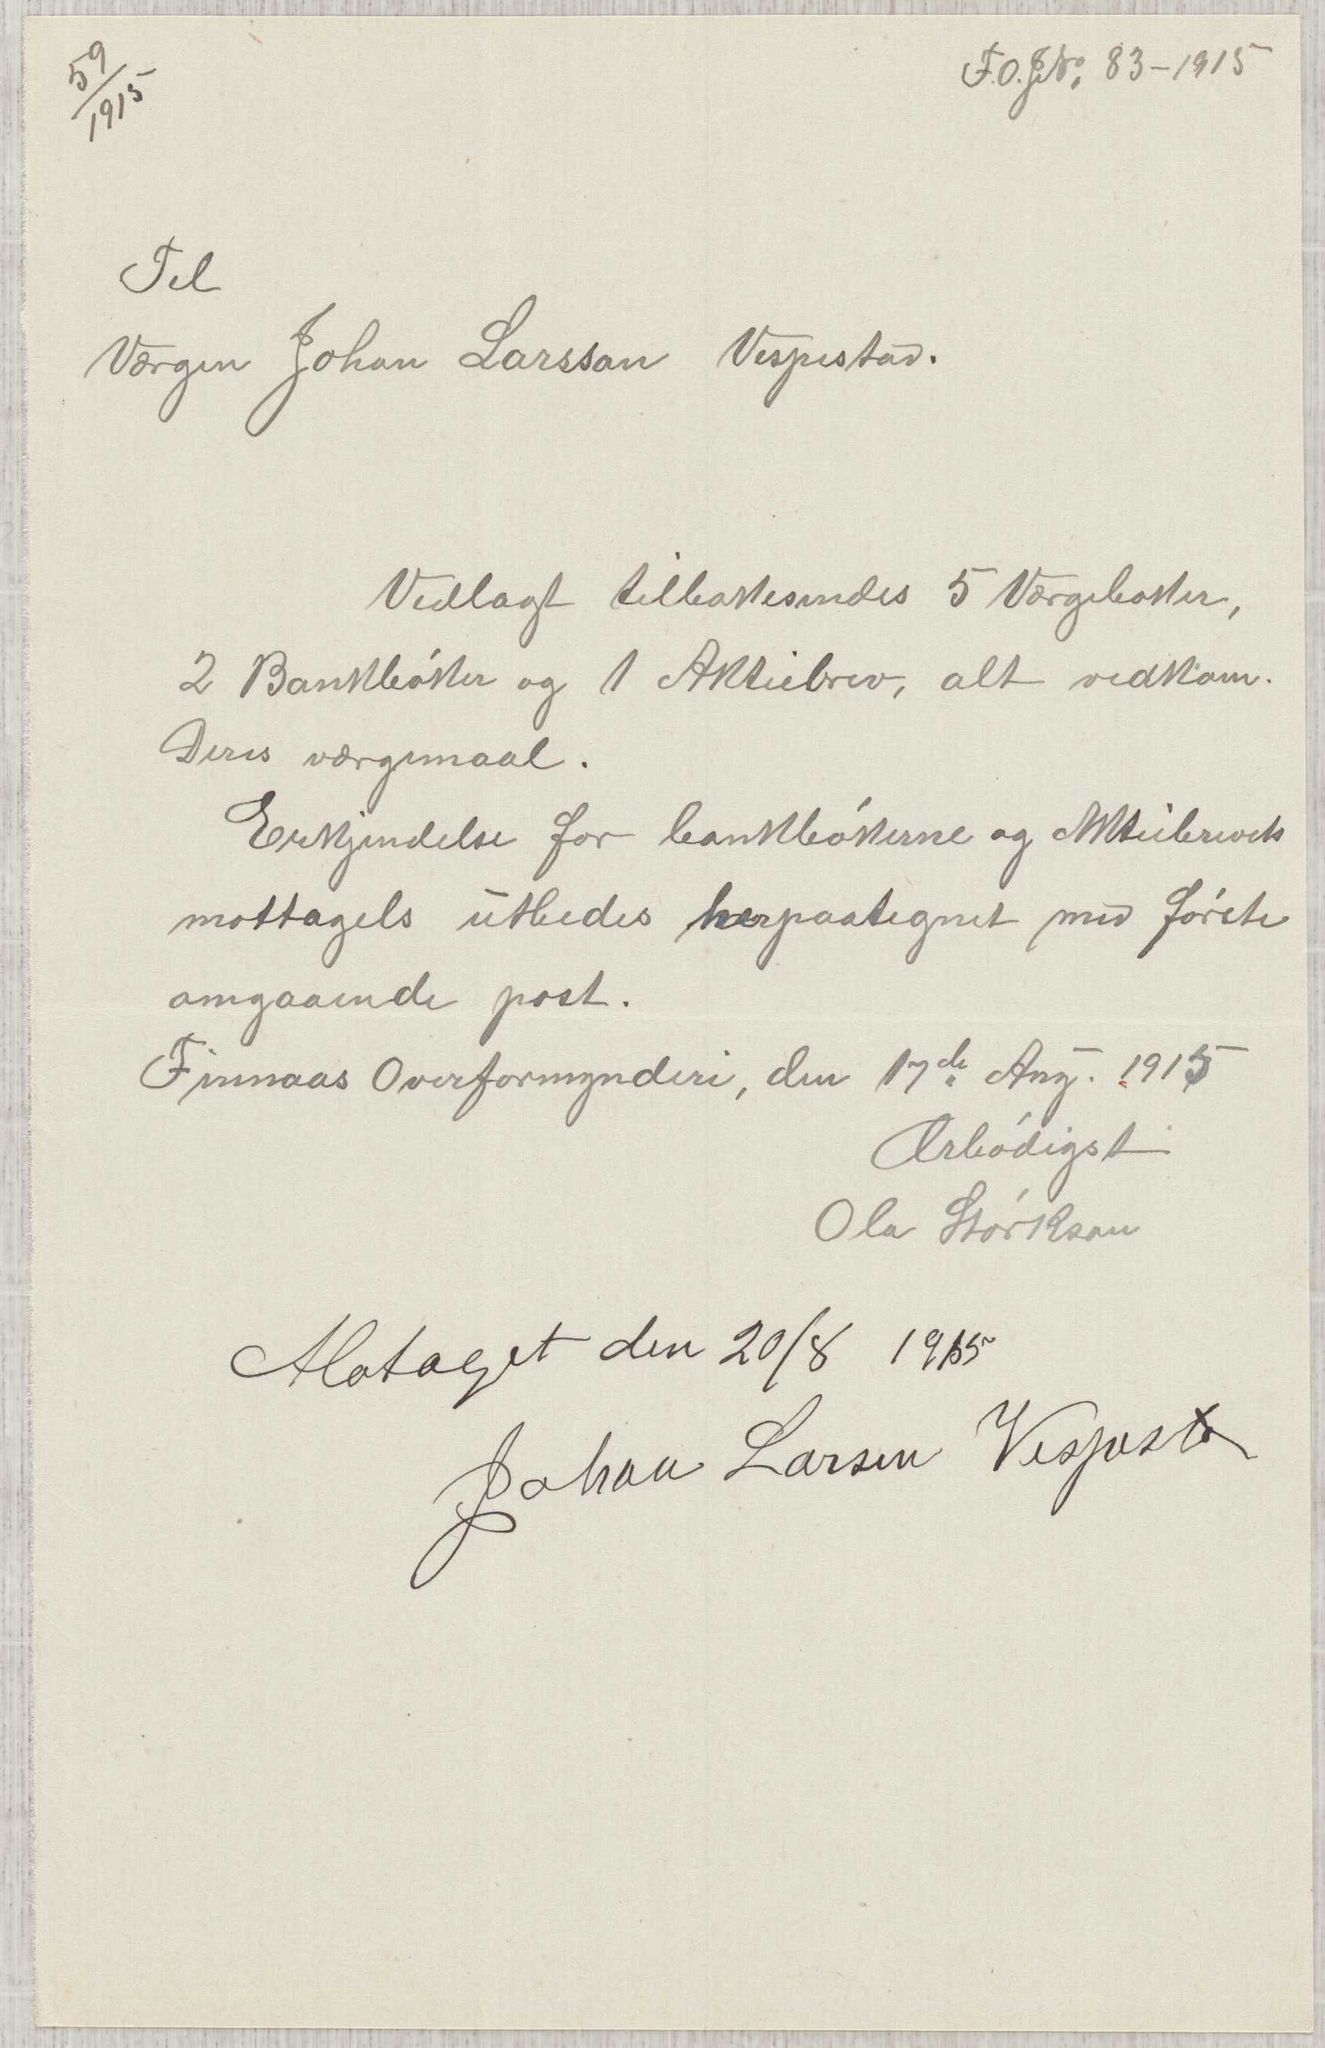 59/1915
F.O.J.No. 83-1915
Til
Værgen Johan Larsson Vespestad.
Vedlagt tilbakesendes 5 Værgebøker,
2 Bankbøker og 1 Aktiebrev, alt vedkom.
Deres værgemaal.
Erkjendelse for bankbøkerne og Aktiebrevets
mottagels utbedes herpaategnet med første
omgaaende post.
Finnaas Overformynderi, den 17de Aug. 1915
Ærbødigst
Ola Størkson
Motaget den 20/8 1915
Johan Larsen Vespest